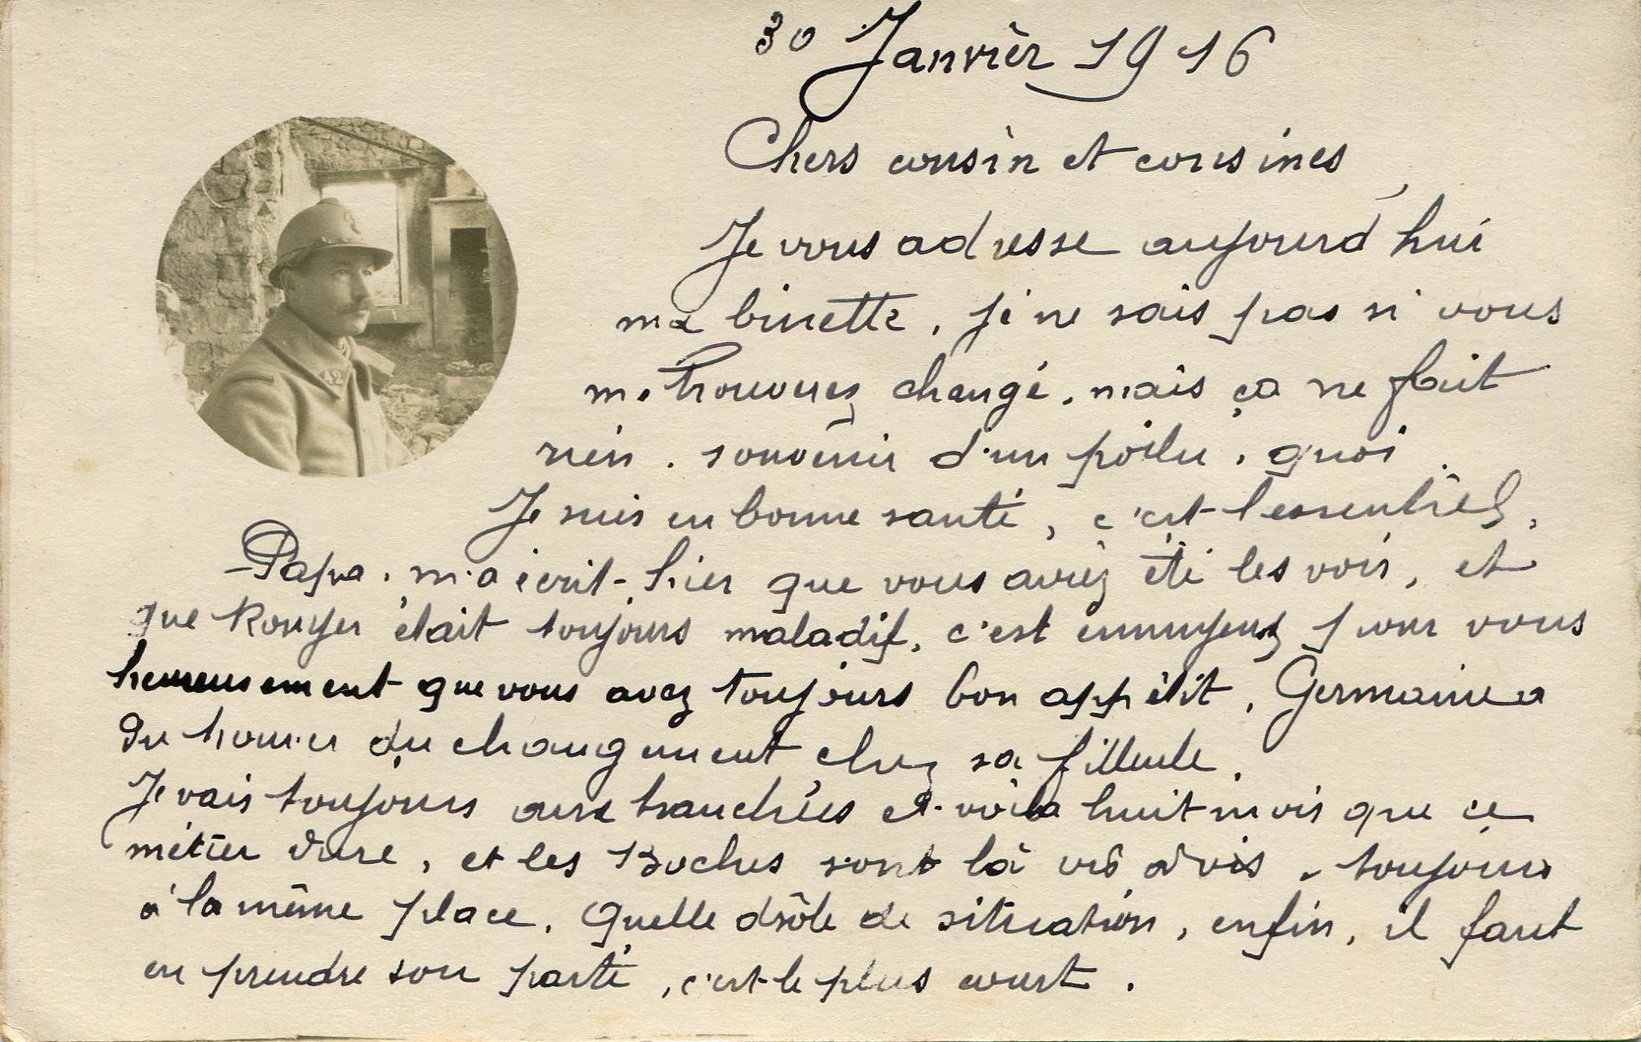 30 Janvièr 1916
Chers cousin et cousines,
Je vous adresse aujourd hui
ma binette, je ne sais pas si vous
me trouverez changé, mais ça ne fait
rien. souvenir d'un poilu, quoi.
Je suis en bonne santé, c'est l'essentiel,
Papa, m'a écrit hier que vous aviez été les voir, et
que était toujours maladif, c'est ennuyeux pour vous
heureusement que vous avez toujours bon appétit. Germaine a
du trouver du changement chez sa filleule.
Je vais toujours aux tranchées et voila huit mois que ce
métier dure, et les Boches sont là vis à vis, toujours
à la même place. Quelle drôle de situation, enfin, il faut
en prendre son parti, c'est le plus court.